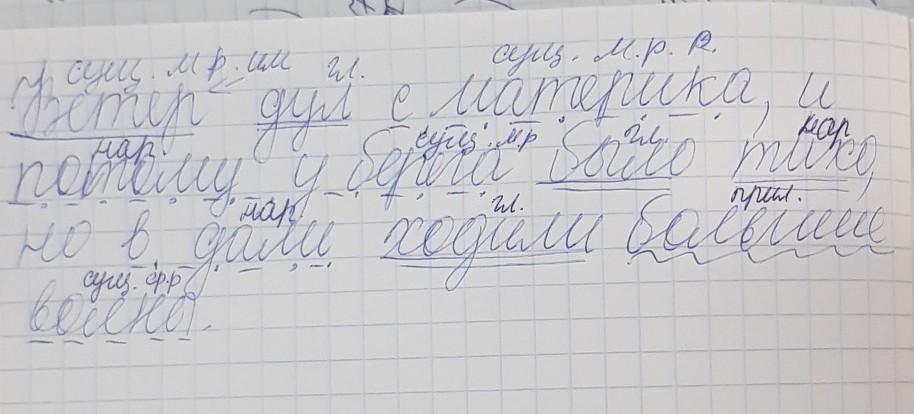 сущ. м р. им гл. сущ. м. р. в.
Ветер дул с материка, и
нар. сущ. мр. гл. нар
потому у берега было тихо,
нар. гл. прил.
но в дали ходили большие
сущ. ф.р
волна.